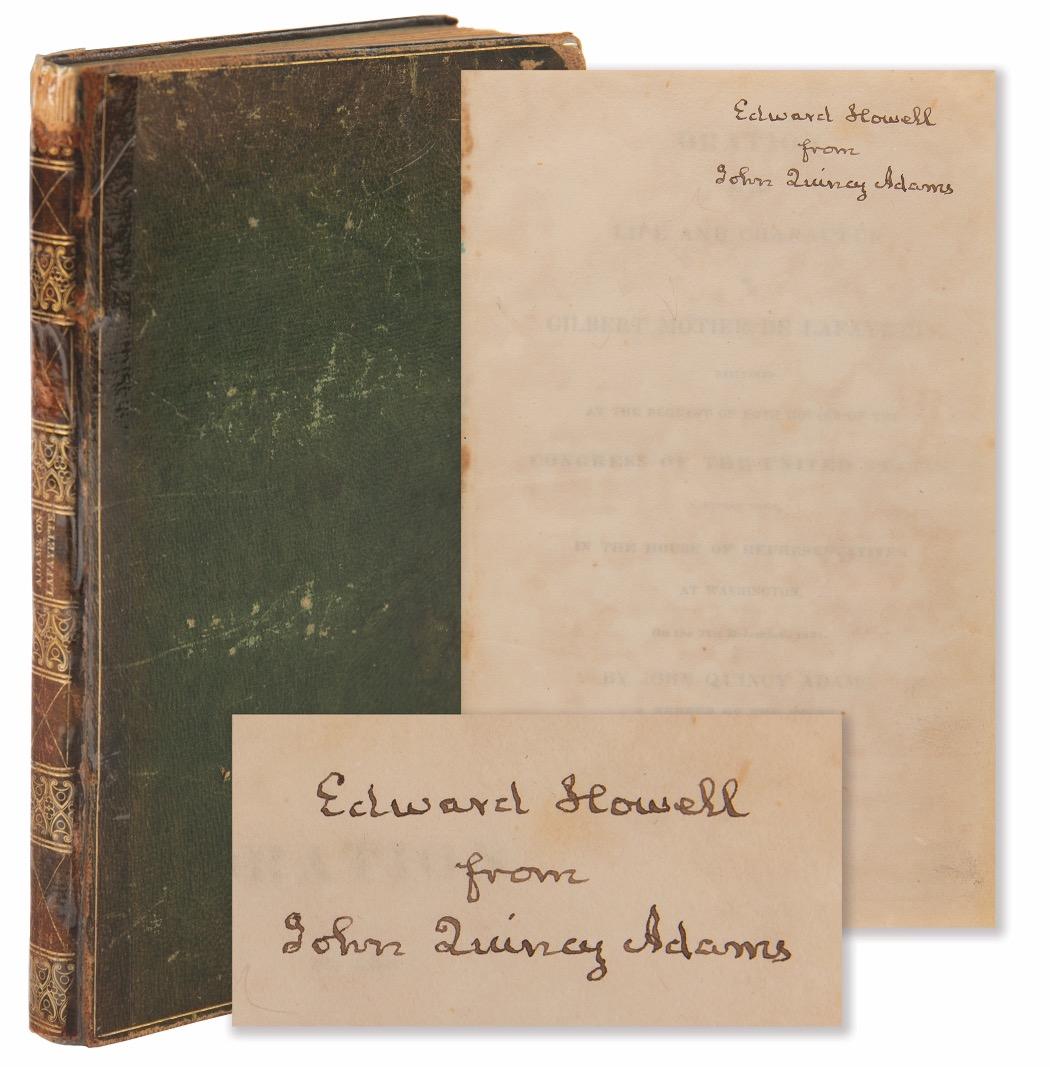 ADAMS ON
LAFAYETTE
Edward Howell
from
John Quincy Adams
ORATION
LIFE AND CHARACTER
GILBERT MOTIER DE LAFAYETTE
AT THE REQUEST OF BOTH HOUSES OF THE
CONGRESS OF THE UNITED STATES
IN THE HOUSE OF REPRESENTATIVES
AT WASHINGTON
On the
BY JOHN QUINCY ADAMS
Edward Howell
from
John Quincy Adams